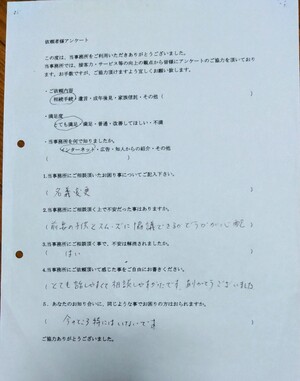 依頼者様アンケート
この度は、当事務所をご利用いただきありがとうございました。
当事務所では、接客力・サービス等の向上の観点から皆様にアンケートのご協力を頂いております。お手数ですが、ご協力頂けますよう宜しくお願い致します。
・ご依頼内容
(相続手続・遺言・成年後見・家族信託・その他( )
・満足度
(とても満足・満足・普通・改善してほしい・不満
・当事務所を何で知りましたか。
(インターネット・広告・知人からの紹介・その他( )
1.当事務所にご相談頂いたお困り事についてご記入下さい。
( 名義変更 )
2.当事務所にご相談頂く上で不安だった事はありますか。
スムーズに協議できるのかどうか
3.当事務所にご相談頂く事で、不安は解消されましたか。
( はい )
4.当事務所にご依頼頂いて感じた事をご自由にお書きください。
( とても話しやすくて相談しやすかったです。ありがとうございました )
5.あなたのお知り合いに、同じような事でお困りの方はおられますか。
( 今のところ特にはいないです )
ご協力ありがとうございました。